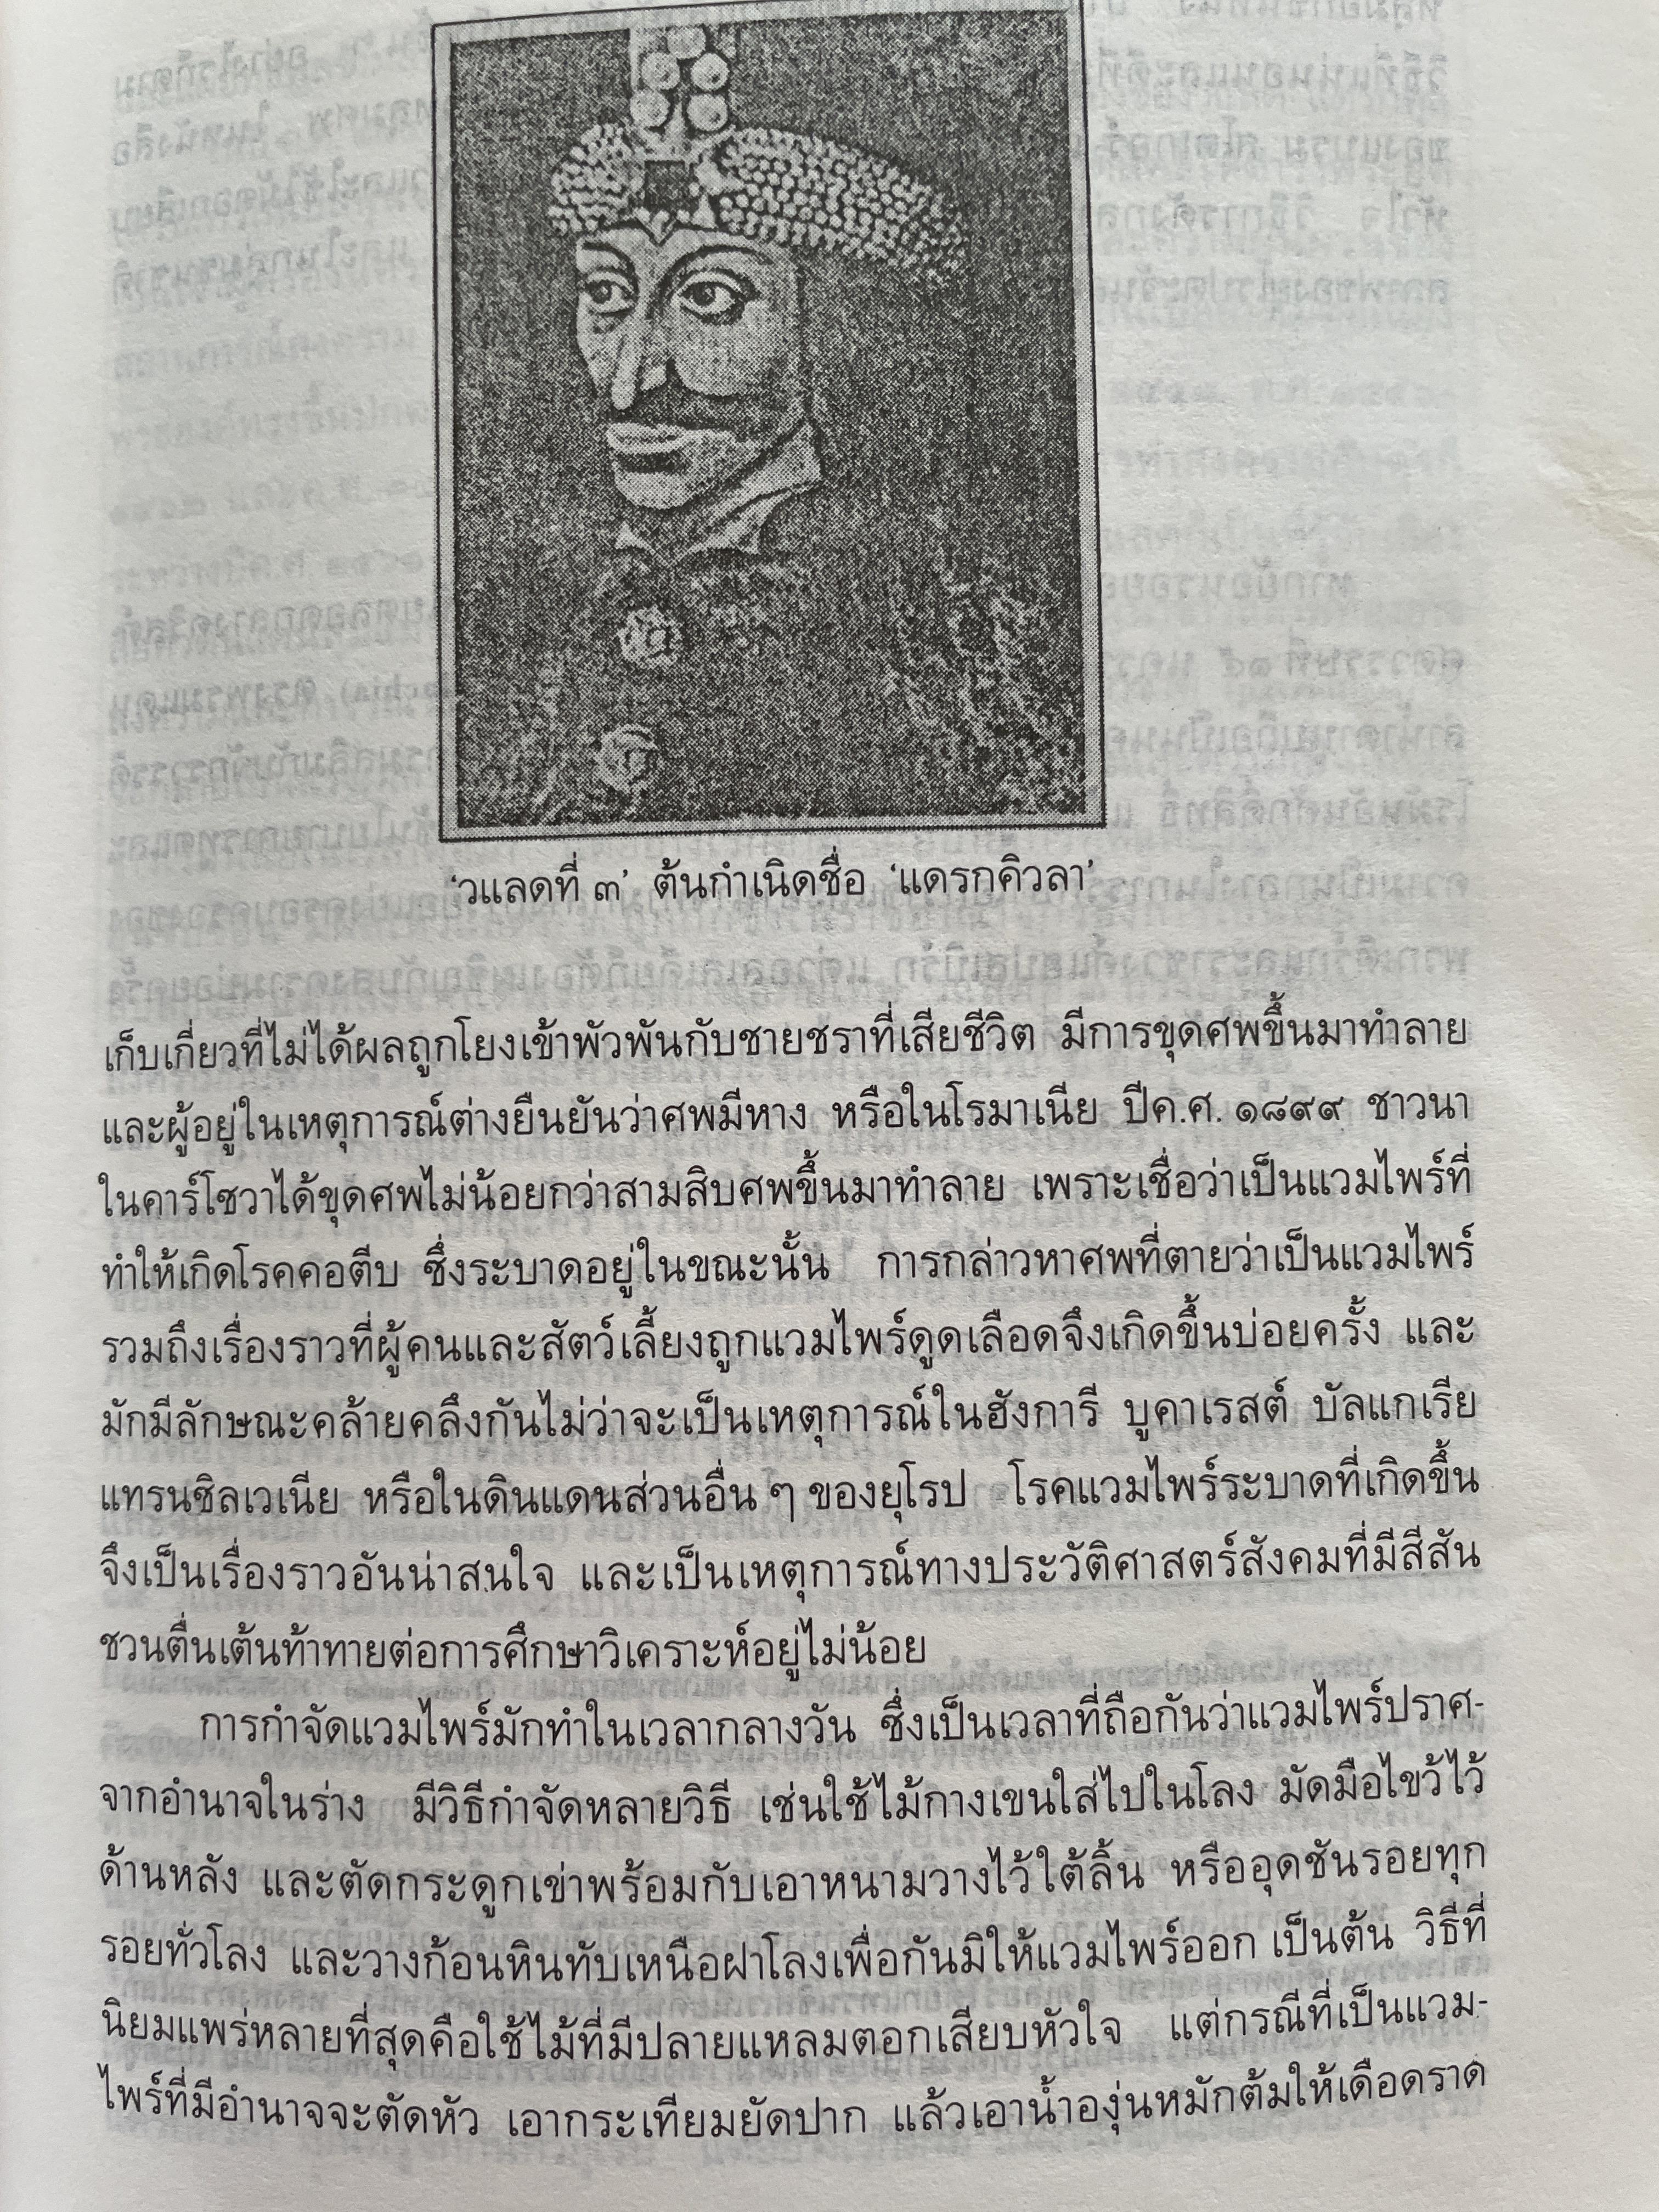 'วแลดที่ ๓' ต้นกำเนิดชื่อ 'แดรกคิวลา'
เก็บเกี่ยวที่ไม่ได้ผลถูกโยงเข้าพัวพันกับชายชราที่เสียชีวิต มีการขุดศพขึ้นมาทำลาย
และผู้อยู่ในเหตุการณ์ต่างยืนยันว่าศพมีหาง หรือในโรมาเนีย ปีค.ศ. ๑๘๙๙ ชาวนา
ในคาร์โชวาได้ขุดศพไม่น้อยกว่าสามสิบศพขึ้นมาทำลาย เพราะเชื่อว่าเป็นแวมไพร์ที่
ทำให้เกิดโรคคอตีบ ซึ่งระบาดอยู่ในขณะนั้น การกล่าวหาศพที่ตายว่าเป็นแวมไพร์
รวมถึงเรื่องราวที่ผู้คนและสัตว์เลี้ยงถูกแวมไพร์ดูดเลือดจึงเกิดขึ้นบ่อยครั้ง และ
มักมีลักษณะคล้ายคลึงกันไม่ว่าจะเป็นเหตุการณ์ในฮังการี บูคาเรสต์ บัลแกเรีย
แทรนซิลเวเนีย หรือในดินแดนส่วนอื่น ๆ ของยุโรป โรคแวมไพร์ระบาดที่เกิดขึ้น
จึงเป็นเรื่องราวอันน่าสนใจ และเป็นเหตุการณ์ทางประวัติศาสตร์สังคมที่มีสีสัน
ชวนตื่นเต้นท้าทายต่อการศึกษาวิเคราะห์อยู่ไม่น้อย
การกำจัดแวมไพร์มักทำในเวลากลางวัน ซึ่งเป็นเวลาที่ถือกันว่าแวมไพร์ปราศ-
จากอำนาจในร่าง มีวิธีกำจัดหลายวิธี เช่นใช้ไม้กางเขนใส่ไปในโลง มัดมือไขว้ไว้
ด้านหลัง และตัดกระดูกเข่าพร้อมกับเอาหนามวางไว้ใต้ลิ้น หรืออุดชันรอยทุก
รอยทั่วโลง และวางก้อนหินทับเหนือฝาโลงเพื่อกันมิให้แวมไพร์ออก เป็นต้น วิธีที่
นิยมแพร่หลายที่สุดคือใช้ไม้ที่มีปลายแหลมตอกเสียบหัวใจ แต่กรณีที่เป็นแวม-
ไพร์ที่มีอำนาจจะตัดหัว เอากระเทียมยัดปาก แล้วเอาน้ำองุ่นหมักต้มให้เดือดราด